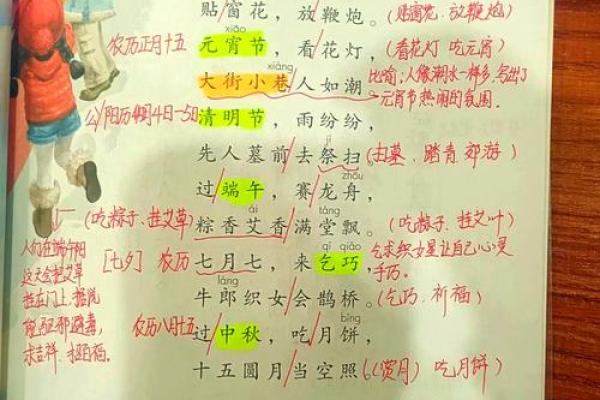 贴窗花，放鞭炮。(贴窗花、放鞭炮)
xiāo
农历正月十五 元宵节，看花灯，(看花灯 吃元宵)
xiàng
大街小巷人如潮。比喻；人像潮水一样多，写出了
元宵节热闹的氛围。
公/阳历4月4日—5日 清明节，雨纷纷，
jì
先人墓前去祭扫(扫墓、踏青、郊游)
zhōu
过端午，赛龙舟，
ài táng
(吃粽子、挂艾草) 粽香艾香满堂飘。(吃粽子、挂艾叶)
人们在端午阳
这天会把艾草
挂在门上，据说
能驱邪避毒，
求吉祥、招百福。
qǐ qiǎo
[七夕] 农历七月七，来乞巧，乞求织女星让自己心灵
手巧。
láng
牛郎织女会鹊桥。(乞巧、祈福)
bǐng
农历八月十五 过中秋，吃月饼，
十五圆月当空照(赏月) 吃月饼)